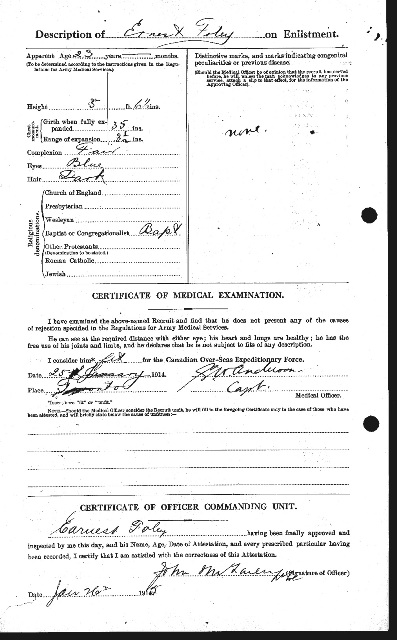 Description of Ernest Foley on Enlistment.
Apparent Age 23 years months.
(To be determined according to the instructions given in the Regulations for Army Medical Services.)
Distinctive marks, and marks indicating congenital peculiarities or previous disease.
(Should the Medical Officer be of opinion that the recruit has served before, he will, unless the man acknowledges to any previous service, attach a slip to that effect, for the information of the Approving Officer).
Height 5 ft. 6½ ins.
Girth when fully expanded 35 ins.
Range of expansion 3½ ins.
none.
Complexion Fair
Eyes Blue
Hair Dark
Religious denominations.
Church of England
Presbyterian
Wesleyan
Baptist or Congregationalist Bapt
Other Protestants
(Denomination to be stated.)
Roman Catholic
Jewish
CERTIFICATE OF MEDICAL EXAMINATION.
I have examined the above-named Recruit and find that he does not present any of the causes
of rejection specified in the Regulations for Army Medical Services.
He can see at the required distance with either eye; his heart and lungs are healthy; he has the
free use of his joints and limbs, and he declares that he is not subject to fits of any description.
I consider him* fit for the Canadian Over-Seas Expeditionary Force.
Date 25th January 1914
Anderson
Place Toronto
Capt.
Medical Officer.
*Insert here "fit" or "unfit."
NOTE.—Should the Medical Officer consider the Recruit unfit, he will fill in the foregoing Certificate only in the case of those who have been attested, and will briefly state below the cause of unfitness:—
CERTIFICATE OF OFFICER COMMANDING UNIT.
Earnest Foley having been finally approved and
inspected by me this day, and his Name, Age, Date of Attestation, and every prescribed particular having
been recorded, I certify that I am satisfied with the correctness of this Attestation.
John (Signature of Officer)
Date Jan 26 1915